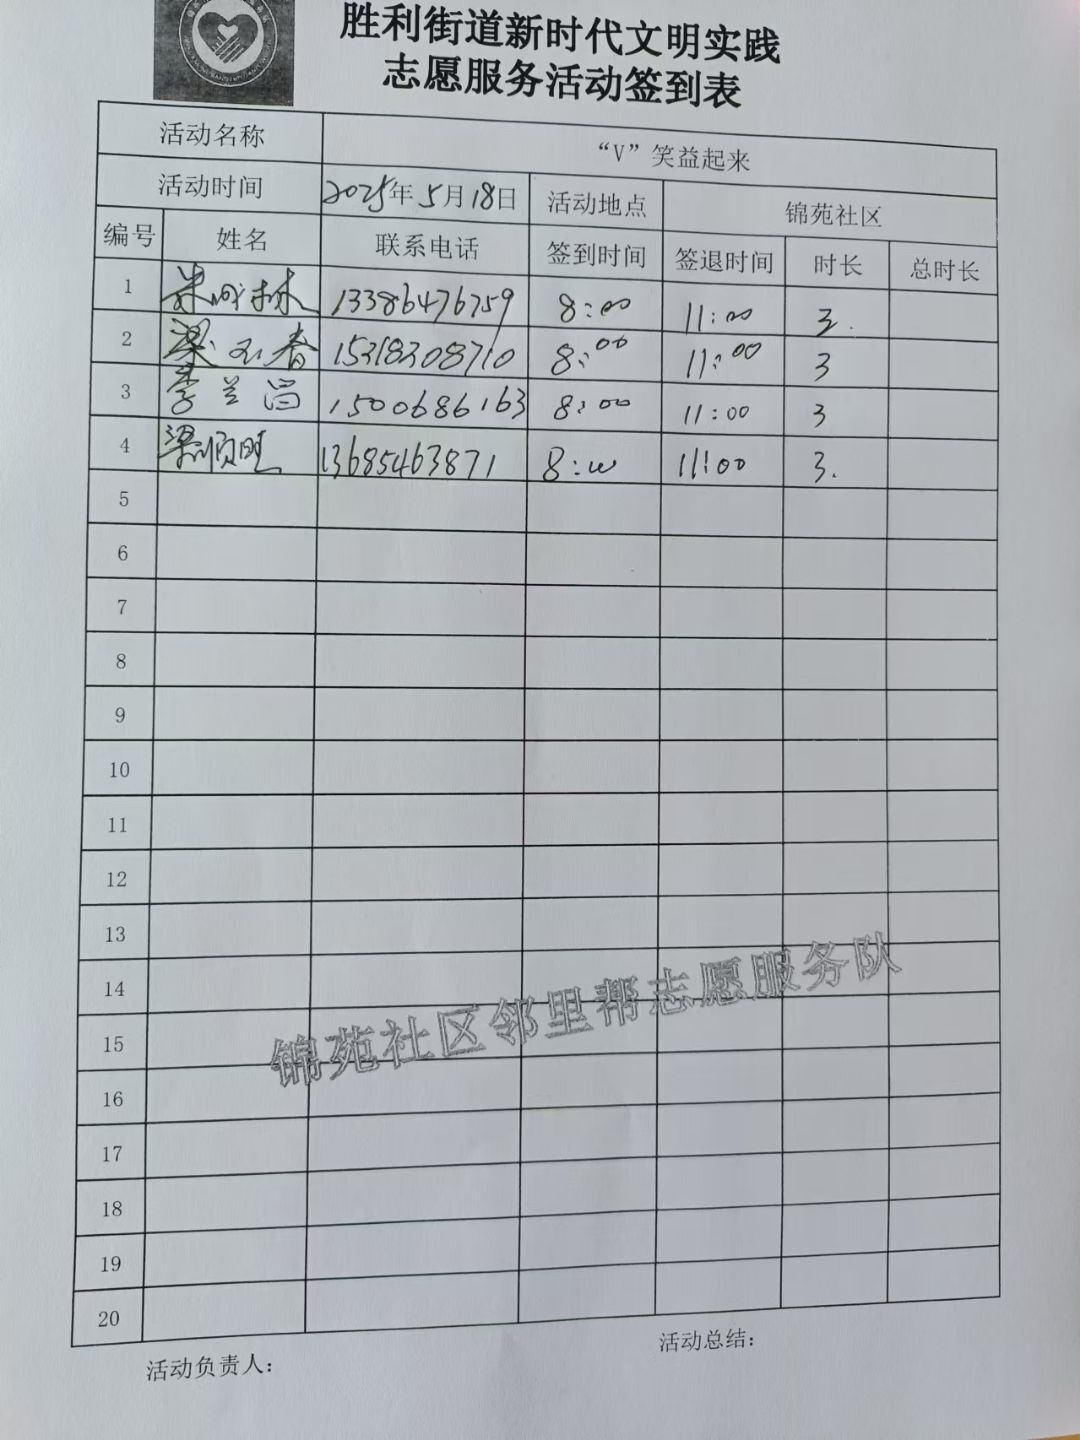 胜利街道新时代文明实践
志愿服务活动签到表
活动名称 “V”笑益起来
活动时间 2025年5月18日 活动地点 锦苑社区
编号 姓名 联系电话 签到时间 签退时间 时长 总时长
1 朱成林 13386476759 8:00 11:00 3.
2 梁玉春 15318308710 8:00 11:00 3
3 李兰沼 1500686163 8:00 11:00 3
4 梁顺旺 13685463871 8:00 11:00 3.
5
6
7
8
9
10
11
12
13
14
15
16
17
18
19
20
锦苑社区邻里帮志愿服务队
活动负责人: 活动总结: